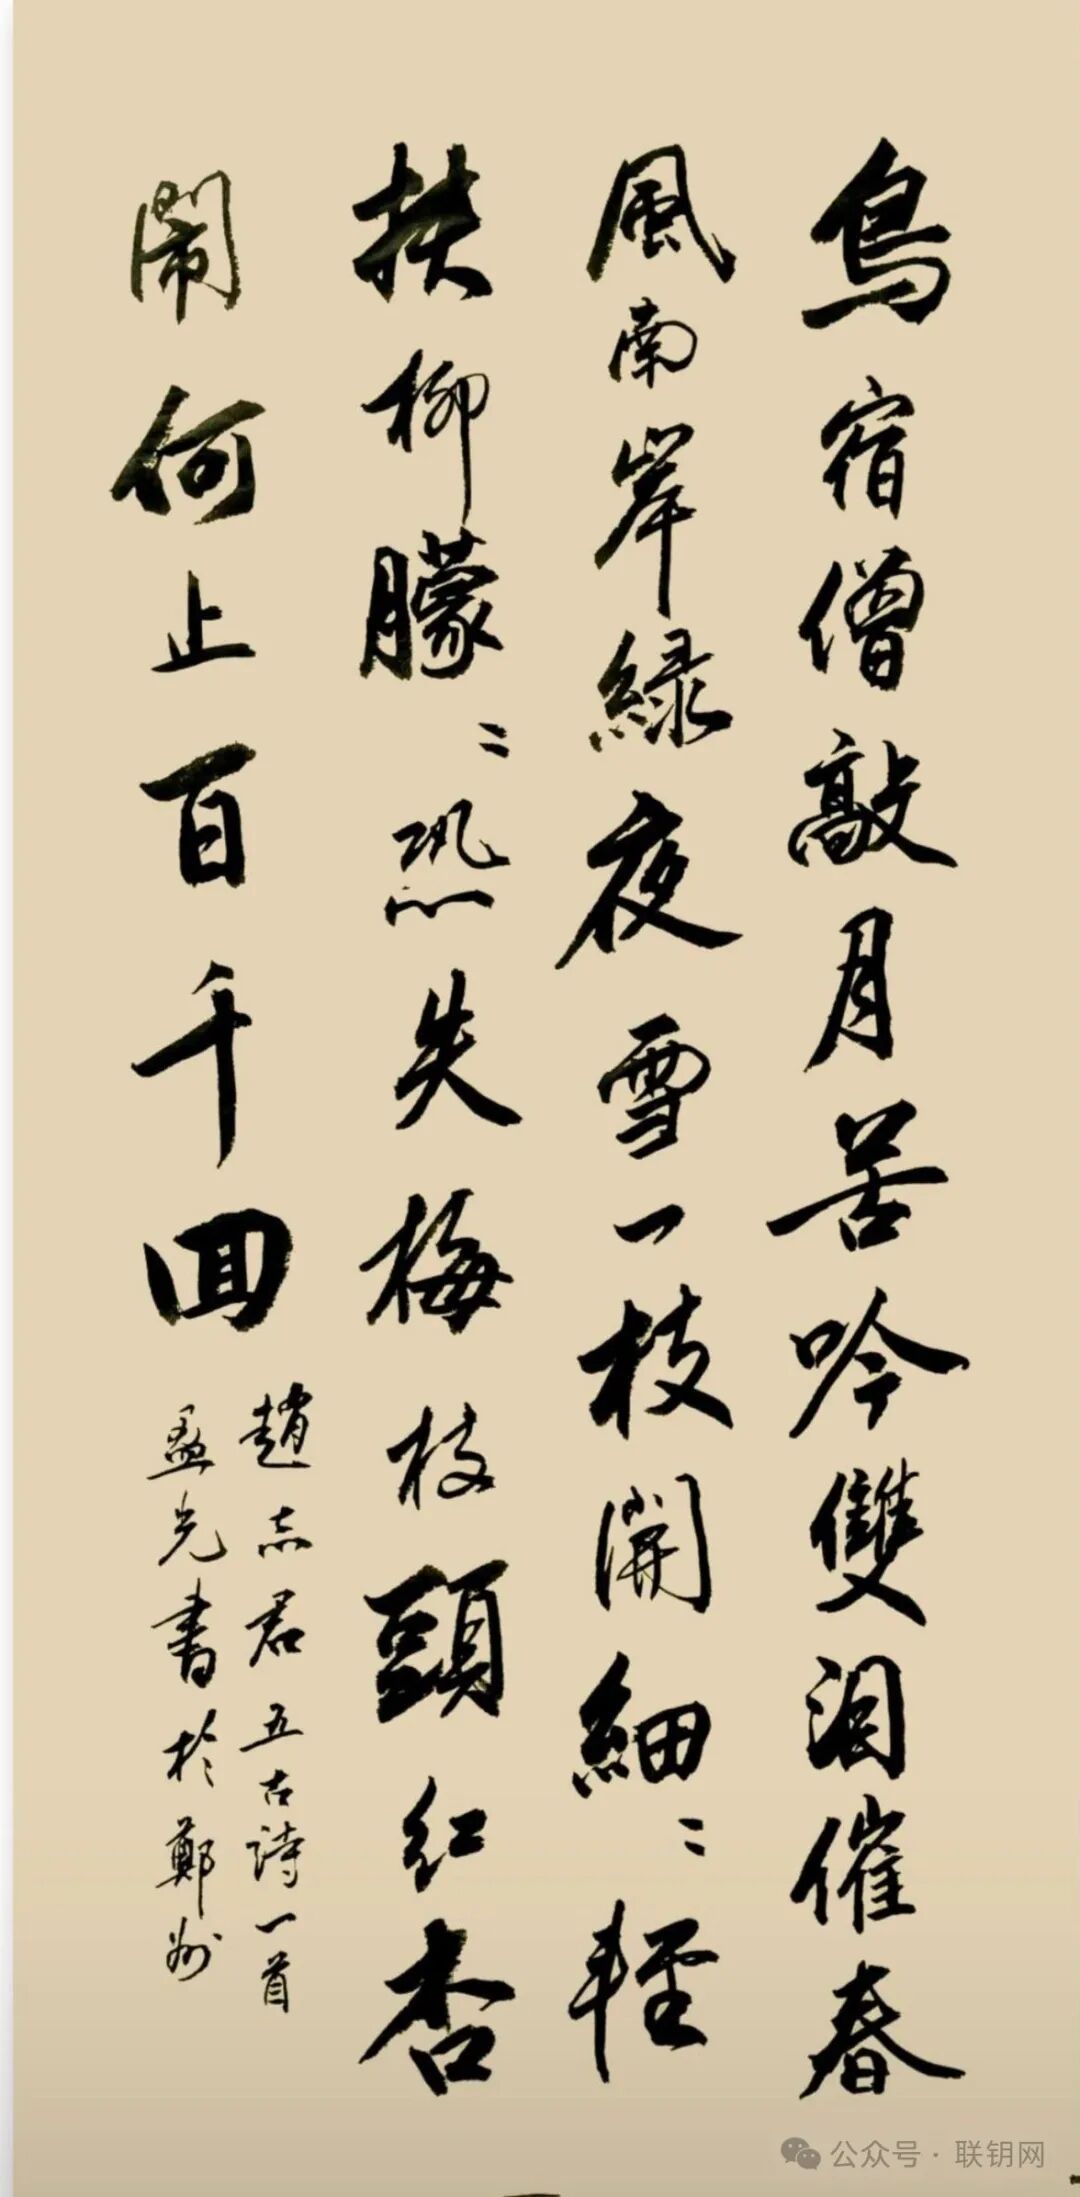 鳥宿僧敲月苦吟雙淚催春
風南岸綠夜雪一枝開細〻輕
扶柳朦〻恐失梅枝頭紅杏
鬧何止百千回
趙志君五古詩一首
孟光書於鄭州
公众号·联钥网